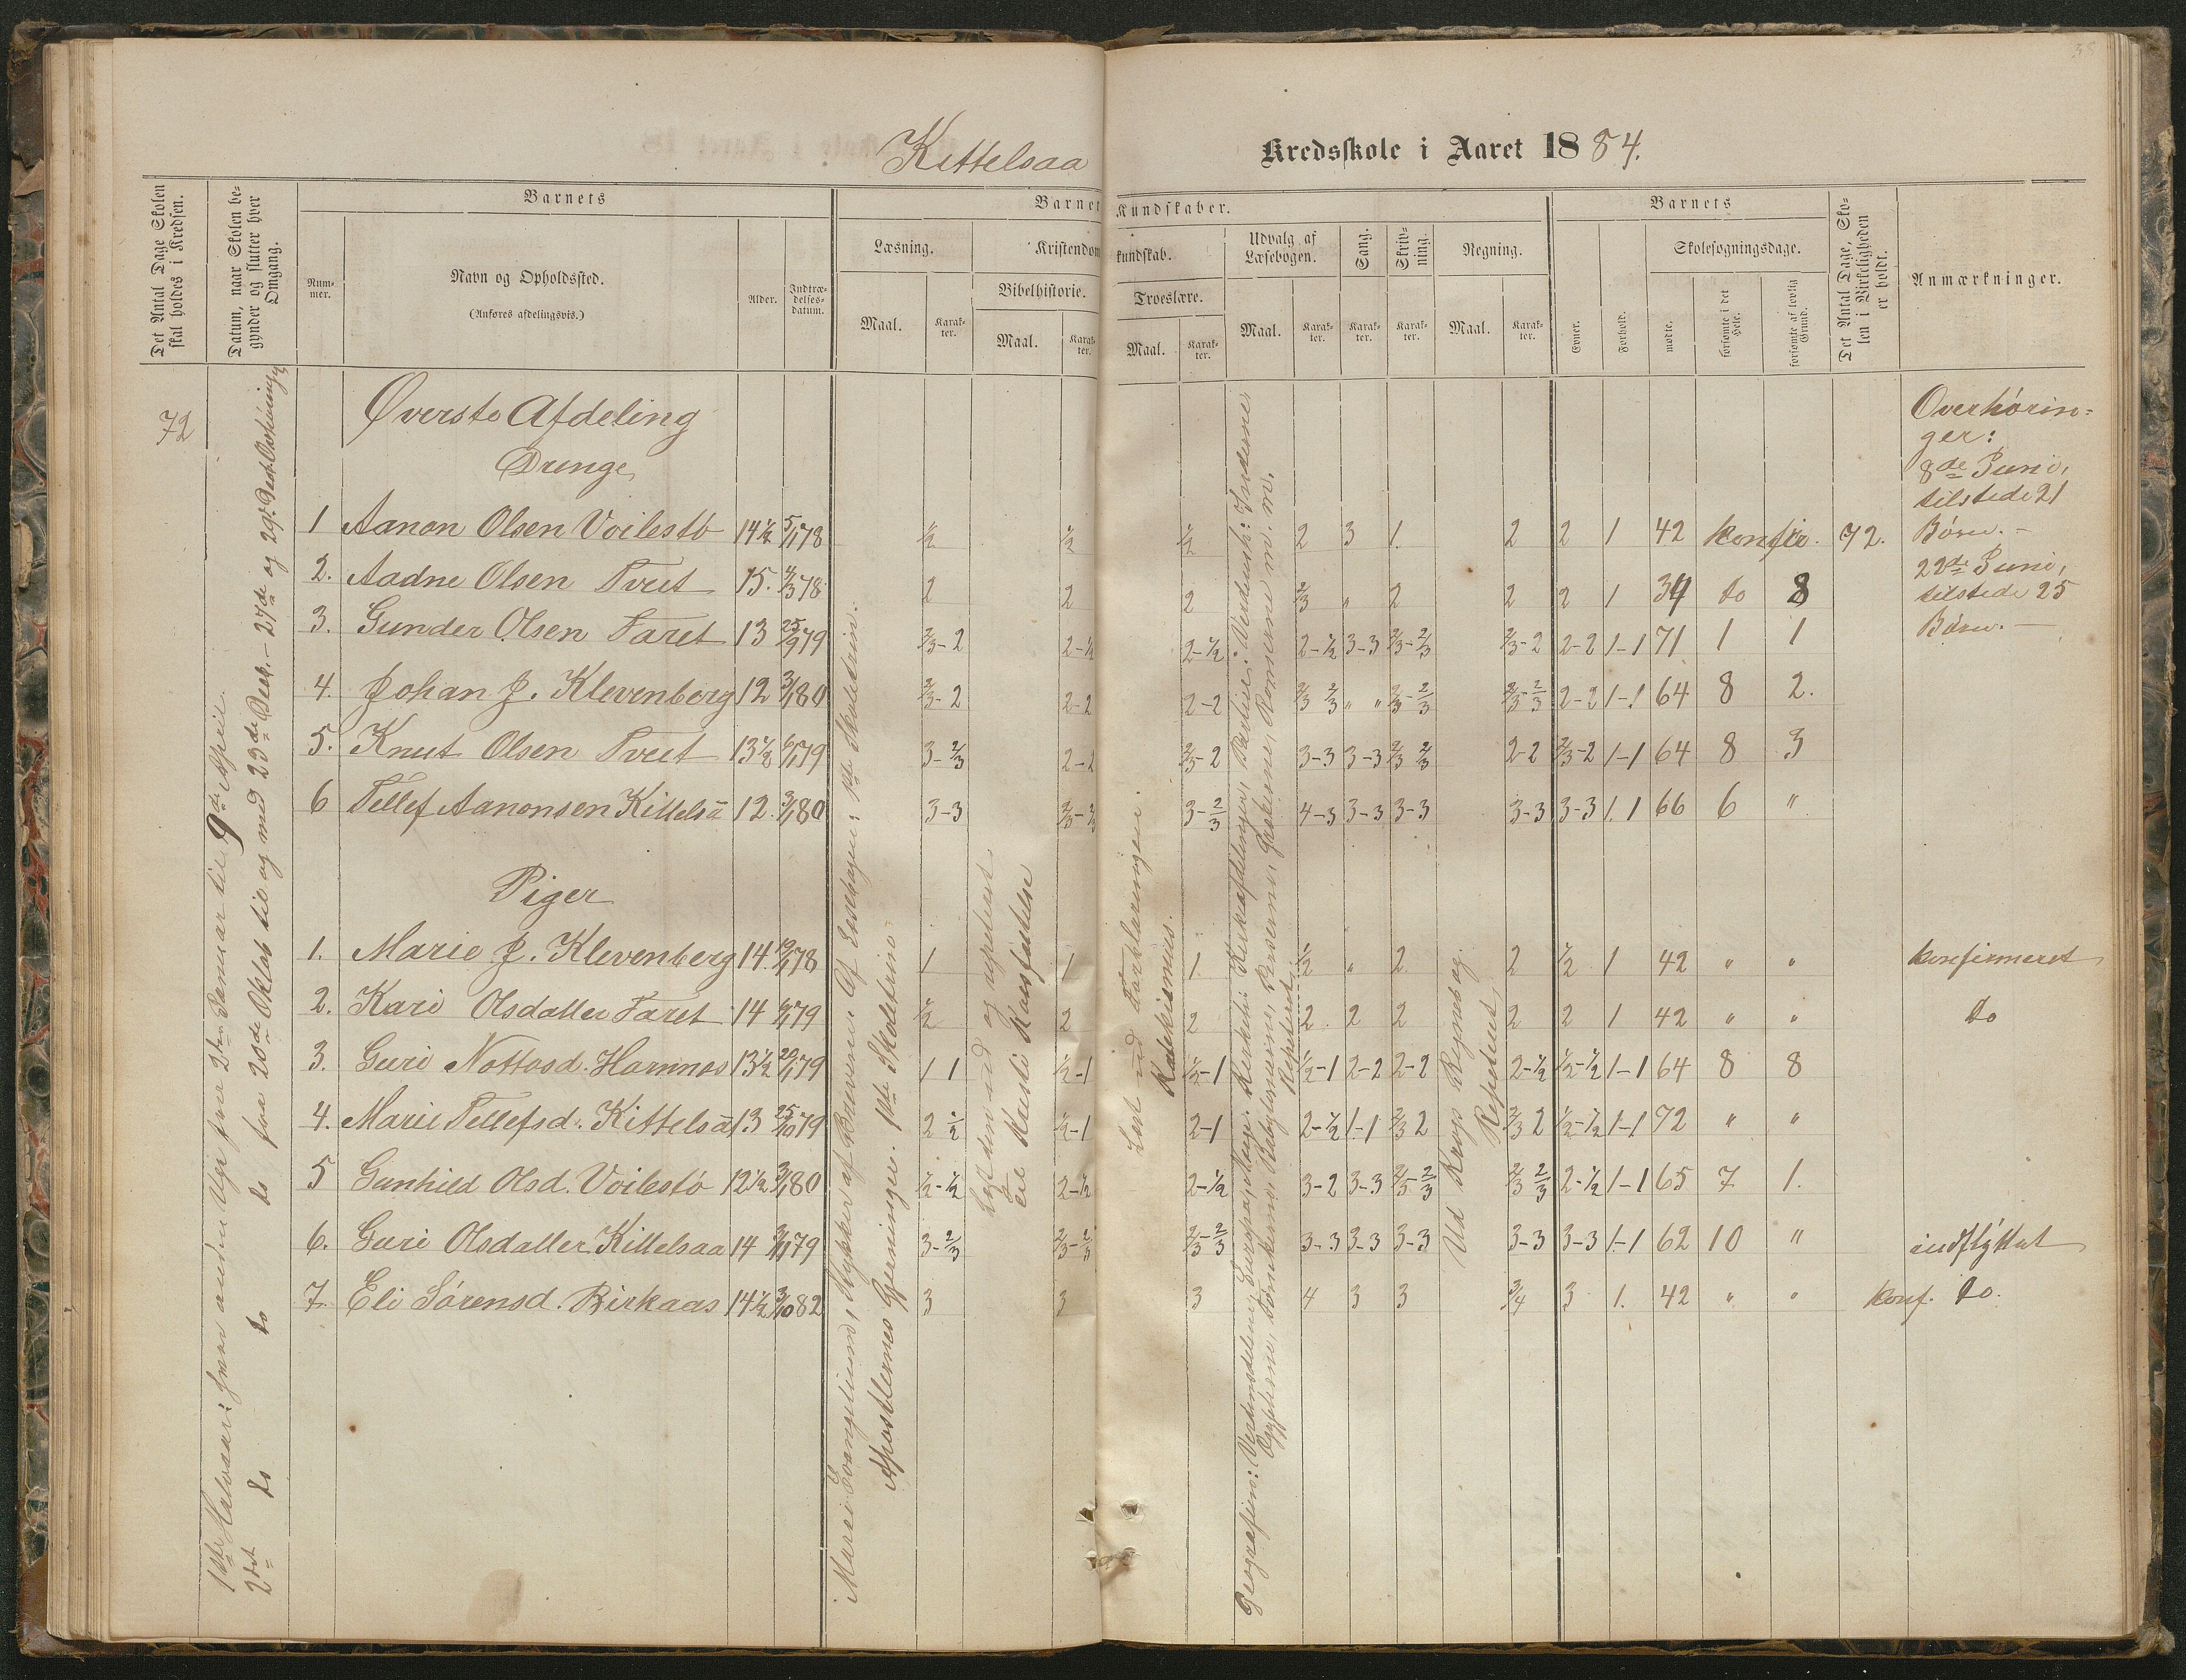 38
Kittelsaa Kredsskole i Aaret 1884.
Det Antal Dage Skolen skal holdes i Kredsen.
Datum, naar Skolen begynder og slutter hver Omgang.
Barnets
Nummer.
Navn og Opholdssted.
(Anføres afdelingsvis.)
Alder.
Indtrædelsesdatum.
Barnets Kundskaber.
Læsning.
Maal.
Karakter.
Kristendomskundskab.
Bibelhistorie.
Maal.
Karakter.
Troeslære.
Maal.
Karakter.
Udvalg af Læsebogen.
Maal.
Karakter.
Sang.
Karakter.
Skrivning.
Karakter.
Regning.
Maal.
Karakter.
Barnets
Evner.
Forhold.
Skolesøgningsdage.
mødte.
forsømte i det Hele.
forsømte af lovlig Grund.
Det Antal Dage, Skolen i Virkeligheden er holdt.
Anmærkninger.
72
Øverste Afdeling
Drenge
1 Aanon Olsen Voilestø 14½ 5/1 78 ½ ½ ½ 2 3 1. 2 2 1 42 konfir. 72.
2. Aadne Olsen Tveit 15. 4/3 78 2 2 2 2/3 " 2 2 2 1 34 do 8
3. Gunder Olsen Faret 13 25/9 79 2/3-2 2-½ 2-½ 2-½ 3-3 2/3-2/3 2/3-2 2-2 1-1 71 1 1
4. Johan J. Klevenberg 12 3/1 80 2/3-2 2-2 2-2 2/3 2/3 " " 2/3-2/3 2/3-2/3 2-2 1-1 64 8 2.
5. Knut Olsen Tveit 13½ 6/1 79 3-2/3 2-2 2/3-2 3-3 3-3 2/3 2/3 2-2 2/3-2 1-1 64 8 3
6 Tellef Aanonsen Kittelså 12. 3/1 80 3-3 2/3-2/3 3-2/3 4-3 3-3 3-3 3-3 3-3 1.1 66 6 "
Piger
1. Marie J. Klevenberg 14. 19/1 78 1 1 1. ½ " 2 2 ½ 1 42 " " konfirmeret
2. Kari Olsdatter Faret 14 6/1 79 ½ 2 2 2. 2 2 2 2 1 42 " " do
3. Guri Nottosd. Hamnes 13½ 20/1 79 1 1 ½-1 ½-1 ½-1 2-2 2-2 2-½ ½-½ 1-1 64 8 8
4. Marie Tellefsd. Kittelså 13 25/10 79 2 ½ ½-1 2-1 2-½ 1-1 2/3 2 2/3 2 ½-½ 1-1 72 " "
5 Gunhild Olsd. Voilestø 12½ 3/1 80 ½-½ 2-½ 2-½ 3-2 3-3 2/3-2/3 2/3 2/3 2-½ 1-1 65 7 1.
6. Guri Olsdatter Kittelsaa 14 3/11 79 3-2/3 2/3-2/3 2/3-2/3 3-3 3-3 3-3 3-3 3-3 1-1 62 10 " indflyttet
7. Eli Sørensd. Birkaas 14½ 3/10 82 3 3 3 4 3 3 3/4 3 1. 42 " " konf. do.
Overhørin-
ger:
8de Juni,
tilstede 21
Børn. –
22de Juni,
tilstede 25
Børn. –
1ste Halvaar: hver anden Uge fra 2den Januar til 9de April
2det do do do fra 20de Oktob til og med 23de Decb. – 27de og 29de Decb.
Marci Evangelium, Stykker af Brevene. Af Læsebogen: 1ste Skoletrin.
Apostlernes Gjerninger. 1ste Skoletrin
Læst ud og repeteret
til Kristi Korsfæstelse
Læst ud Forklaringen.
Katekismus.
Repeteret
Ud Regnebog
Repeteret